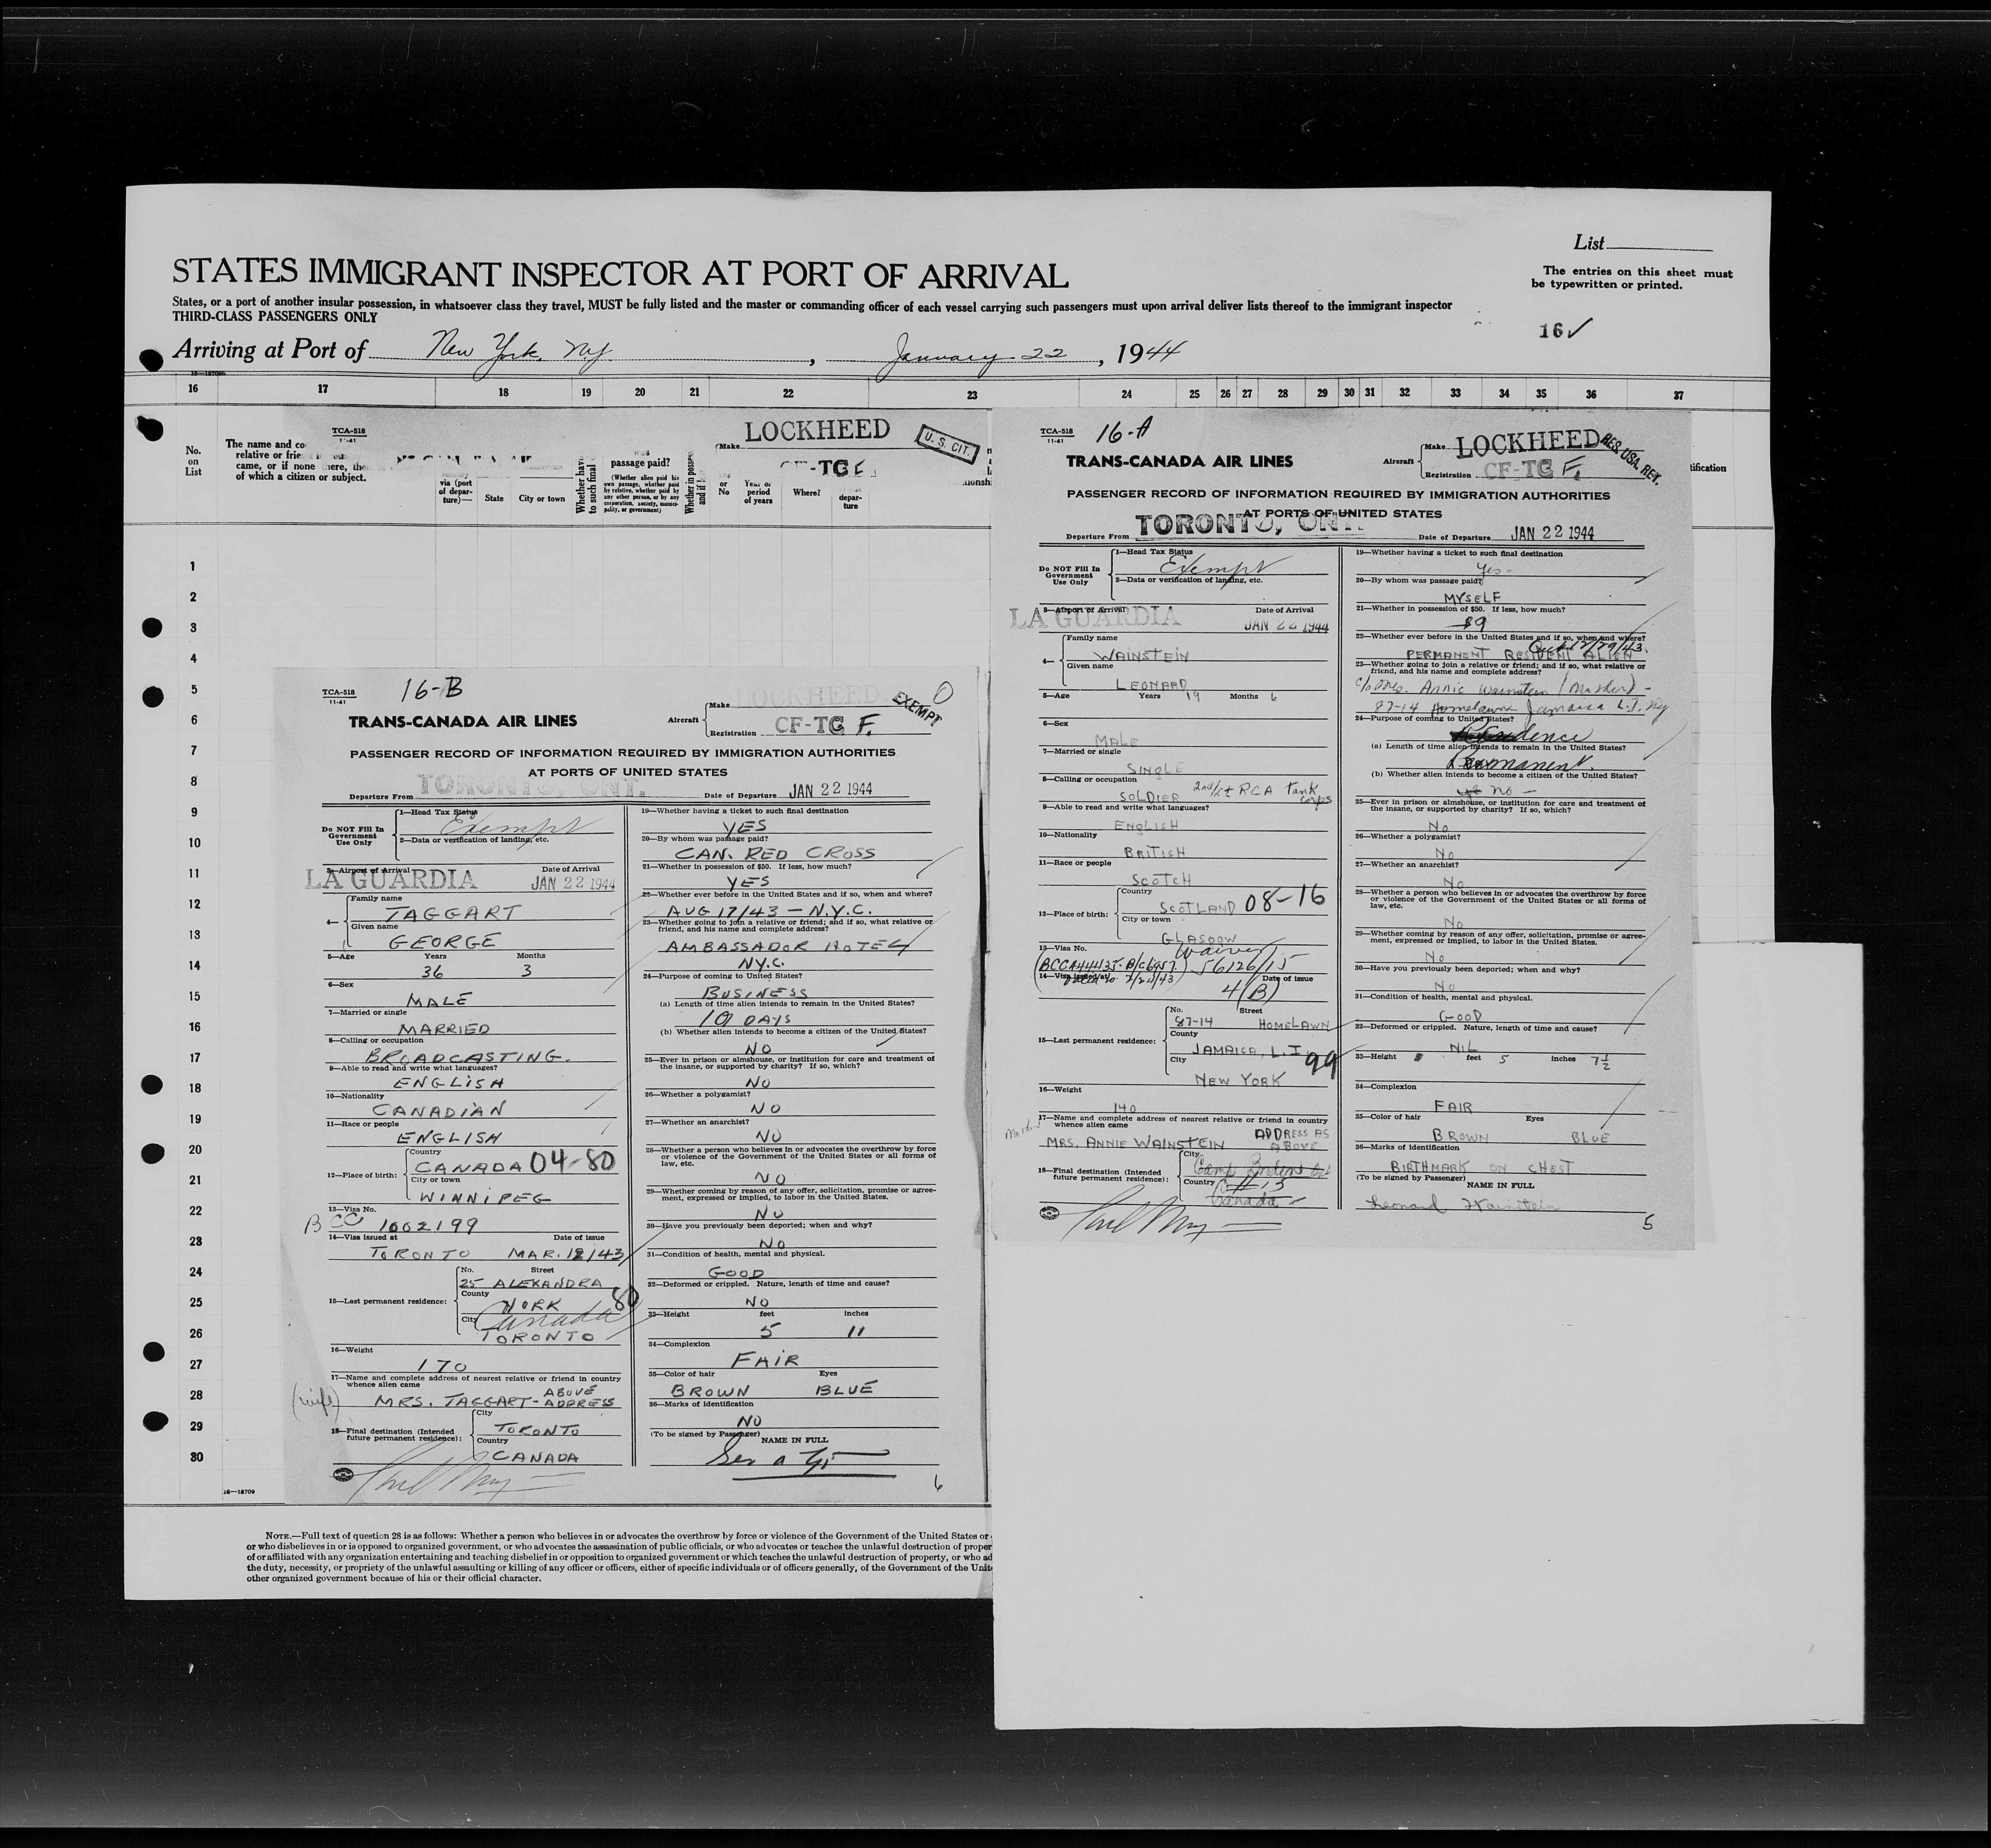 List
STATES IMMIGRANT INSPECTOR AT PORT OF ARRIVAL
The entries on this sheet must
be typewritten or printed.
States, or a port of another insular possession, in whatsoever class they travel, MUST be fully listed and the master or commanding officer of each vessel carrying such passengers must upon arrival deliver lists thereof to the immigrant inspector
THIRD-CLASS PASSENGERS ONLY
16✓
Arriving at Port of New York, N.Y. , January 22, 1944
16 17 18 19 20 21 22 23 24 25 26 27 28 29 30 31 32 33 34 35 36 37
No.
on
List
The name and co
relative or frie
came, or if none there, the
of which a citizen or subject.
TCA-518
11-41
via (port
of depar-
ture)—
State
City or town
Whether hav
to such final
passage paid?
(Whether alien paid his
own passage, whether paid
by relative, whether paid by
any other person, or by any
corporation, society, munici-
pality, or government)
Whether in posses
and if
or
No
Year or
period
of years
Where?
depar-
ture
Make LOCKHEED
U. S. CIT.
-TG F
tification
1
2
3
4
5
6
7
8
9
10
11
12
13
14
15
16
17
18
19
20
21
22
23
24
25
26
27
28
29
30
16—18709
TCA-518
11-41
16-B
LOCKHEED
EXEMPT
0
TRANS-CANADA AIR LINES
Aircraft
Make
Registration CF-TG F.
PASSENGER RECORD OF INFORMATION REQUIRED BY IMMIGRATION AUTHORITIES
AT PORTS OF UNITED STATES
Departure From TORONTO, ONT. Date of Departure JAN 22 1944
Do NOT Fill In
Government
Use Only
1—Head Tax Status
Exempt
2—Data or verification of landing, etc.
3—Airport of Arrival Date of Arrival
LA GUARDIA JAN 22 1944
4—
Family name
TAGGART
Given name
GEORGE
5—Age Years Months
36 3
6—Sex
MALE
7—Married or single
MARRIED
8—Calling or occupation
BROADCASTING.
9—Able to read and write what languages?
ENGLISH
10—Nationality
CANADIAN
11—Race or people
ENGLISH
12—Place of birth:
Country
CANADA 04-80
City or town
WINNIPEG
13—Visa No.
BCC 1002199
14—Visa issued at Date of issue
TORONTO MAR. 12/43
15—Last permanent residence:
No. Street
25 ALEXANDRA
County
YORK 80
City Canada
TORONTO
16—Weight
170
17—Name and complete address of nearest relative or friend in country
whence alien came
(wife) MRS. TAGGART - ABOVE ADDRESS
18—Final destination (Intended
future permanent residence):
City
TORONTO
Country
CANADA
19—Whether having a ticket to such final destination
YES
20—By whom was passage paid?
CAN. RED CROSS
21—Whether in possession of $50. If less, how much?
YES
22—Whether ever before in the United States and if so, when and where?
AUG 17/43 — N.Y.C.
23—Whether going to join a relative or friend; and if so, what relative or
friend, and his name and complete address?
AMBASSADOR HOTEL
N.Y.C.
24—Purpose of coming to United States?
BUSINESS
(a) Length of time alien intends to remain in the United States?
10 DAYS
(b) Whether alien intends to become a citizen of the United States?
NO
25—Ever in prison or almshouse, or institution for care and treatment of
the insane, or supported by charity? If so, which?
NO
26—Whether a polygamist?
NO
27—Whether an anarchist?
NO
28—Whether a person who believes in or advocates the overthrow by force
or violence of the Government of the United States or all forms of
law, etc.
NO
29—Whether coming by reason of any offer, solicitation, promise or agree-
ment, expressed or implied, to labor in the United States.
NO
30—Have you previously been deported; when and why?
NO
31—Condition of health, mental and physical.
GOOD
32—Deformed or crippled. Nature, length of time and cause?
NO
33—Height feet inches
5 11
34—Complexion
FAIR
35—Color of hair Eyes
BROWN BLUE
36—Marks of identification
NO
(To be signed by Passenger)
NAME IN FULL
6
TCA-518
11-41
16-A
TRANS-CANADA AIR LINES
Aircraft
Make LOCKHEED
Registration CF-TG F.
RES. USA. RET.
PASSENGER RECORD OF INFORMATION REQUIRED BY IMMIGRATION AUTHORITIES
AT PORTS OF UNITED STATES
Departure From TORONTO, ONT. Date of Departure JAN 22 1944
Do NOT Fill In
Government
Use Only
1—Head Tax Status
Exempt
2—Data or verification of landing, etc.
3—Airport of Arrival Date of Arrival
LA GUARDIA JAN 22 1944
4—
Family name
WAINSTEIN
Given name
LEONARD
5—Age Years 19 Months 6
6—Sex
MALE
7—Married or single
SINGLE
8—Calling or occupation
SOLDIER 2nd/Lt RCA Tank Corps
9—Able to read and write what languages?
ENGLISH
10—Nationality
BRITISH
11—Race or people
SCOTCH
12—Place of birth:
Country
SCOTLAND 08-16
City or town
GLASGOW
13—Visa No. Waiver
56126/15
14—Visa issued at Date of issue
4(B)
15—Last permanent residence:
No. Street
87-14 HOMELAWN
County
JAMAICA, L.I. 99
City
NEW YORK
16—Weight
140
17—Name and complete address of nearest relative or friend in country
whence alien came
Mother MRS. ANNIE WAINSTEIN ADDRESS AS ABOVE
18—Final destination (Intended
future permanent residence):
City
Camp Borden Ont
Country
Canada
19—Whether having a ticket to such final destination
Yes-
20—By whom was passage paid?
MYSELF
21—Whether in possession of $50. If less, how much?
$9
22—Whether ever before in the United States and if so, when and where?
Out 12/29/43.
PERMANENT RESIDENT ALIEN
23—Whether going to join a relative or friend; and if so, what relative or
friend, and his name and complete address?
c/o Mrs. Annie Wainstein (Mother) -
87-14 Homelawn Jamaica L.I. Ny
24—Purpose of coming to United States?
Residence
(a) Length of time alien intends to remain in the United States?
Permanent.
(b) Whether alien intends to become a citizen of the United States?
no -
25—Ever in prison or almshouse, or institution for care and treatment of
the insane, or supported by charity? If so, which?
No
26—Whether a polygamist?
No
27—Whether an anarchist?
No
28—Whether a person who believes in or advocates the overthrow by force
or violence of the Government of the United States or all forms of
law, etc.
No
29—Whether coming by reason of any offer, solicitation, promise or agree-
ment, expressed or implied, to labor in the United States.
No
30—Have you previously been deported; when and why?
No
31—Condition of health, mental and physical.
GOOD
32—Deformed or crippled. Nature, length of time and cause?
NIL
33—Height feet 5 inches 7½
34—Complexion
FAIR
35—Color of hair Eyes
BROWN BLUE
36—Marks of identification
BIRTHMARK ON CHEST
(To be signed by Passenger)
NAME IN FULL
Leonard Wainstein
5
NOTE.—Full text of question 28 is as follows: Whether a person who believes in or advocates the overthrow by force or violence of the Government of the United States or
or who disbelieves in or is opposed to organized government, or who advocates the assassination of public officials, or who advocates or teaches the unlawful destruction of proper
of or affiliated with any organization entertaining and teaching disbelief in or opposition to organized government or which teaches the unlawful destruction of property, or who ad
the duty, necessity, or propriety of the unlawful assaulting or killing of any officer or officers, either of specific individuals or of officers generally, of the Government of the Unit
other organized government because of his or their official character.